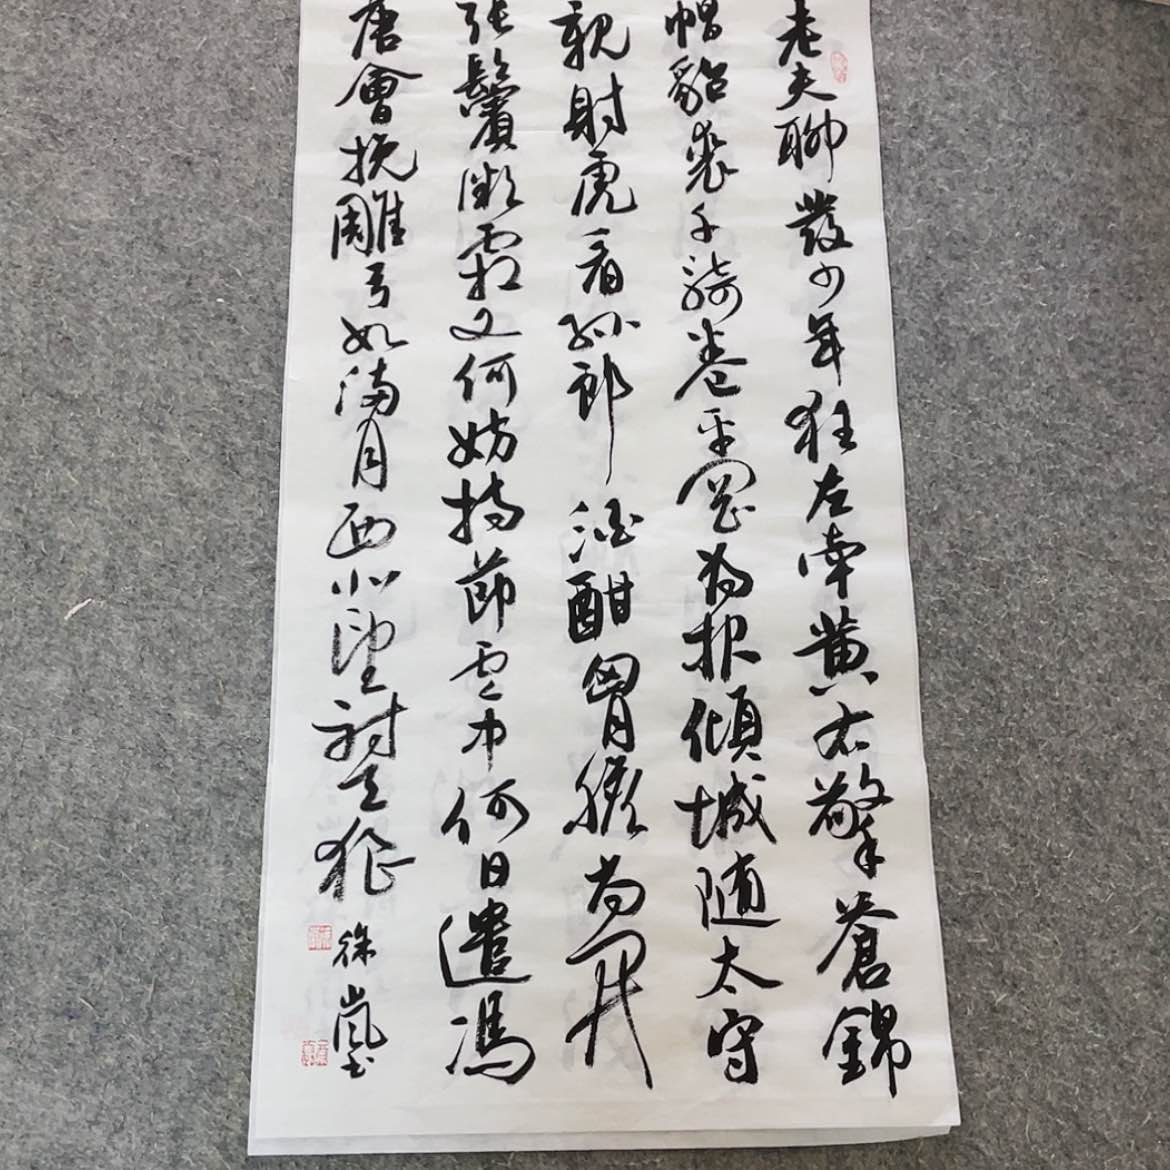 老夫聊發少年狂左牽黄右擎蒼錦
帽貂裘千騎卷平岡為报傾城随太守
親射虎看孫郎酒酣胷膽尚開
张鬢微霜又何妨持節雲中何日遣馮
唐會挽雕弓如滿月西北望射天狼
徐嵐书